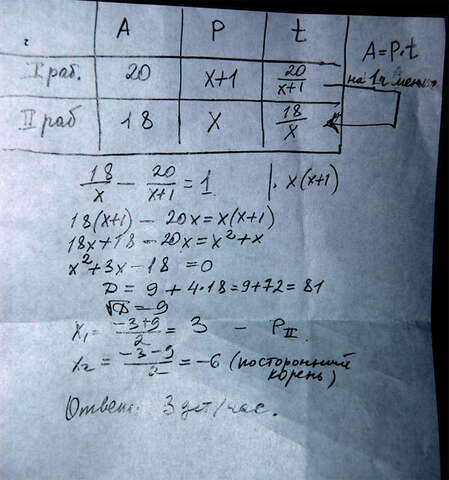 A P t
A=P·t
I раб. 20 x+1 20/(x+1) на 1ч
II раб 18 x 18/x
18/x − 20/(x+1) = 1 |· x(x+1)
18(x+1) − 20x = x(x+1)
18x+18 − 20x = x²+x
x²+3x−18 =0
D = 9 + 4·18 = 9+72 = 81
√D = 9
x₁ = (−3+9)/2 = 3 − P_II
x₂ = (−3−9)/2 = −6 (посторонний
корень)
Ответ: 3 дет/час.